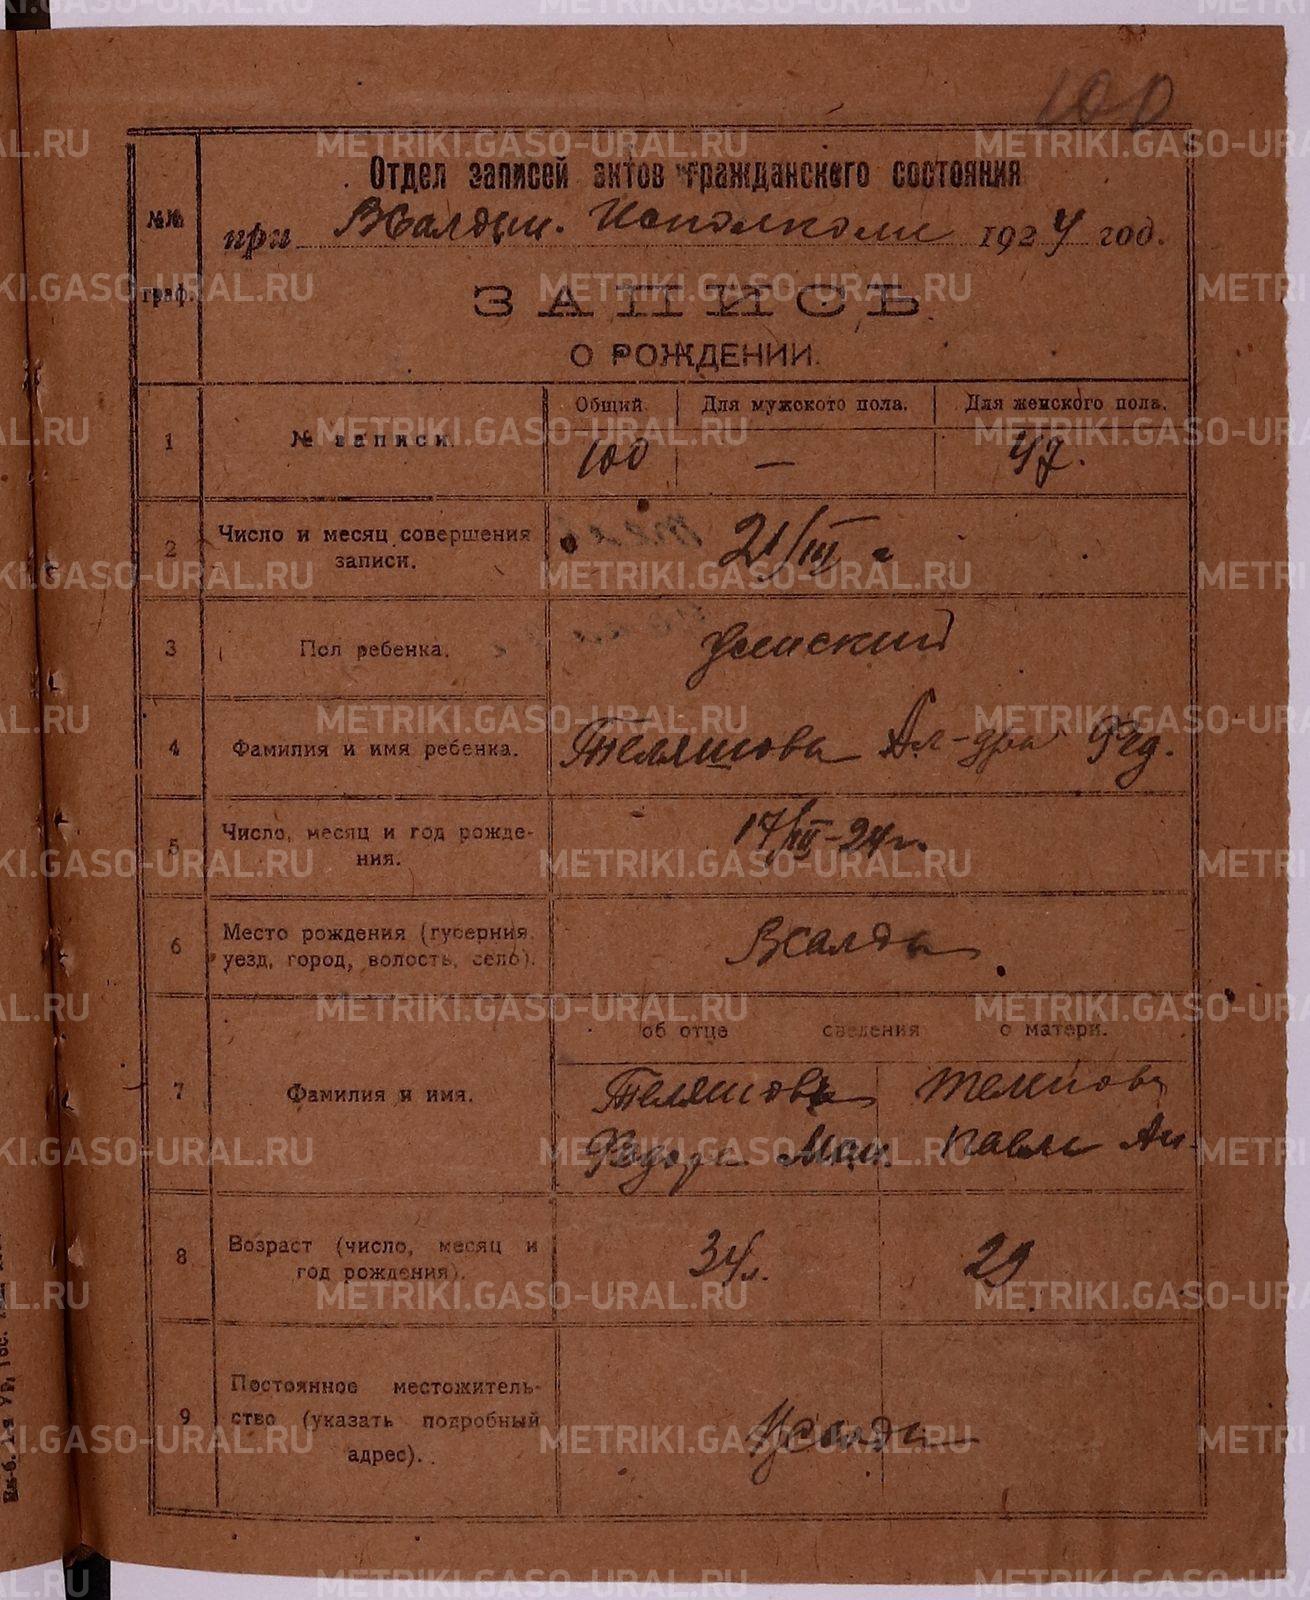 100
Отдел записей актов гражданского состояния
при В.Салдин. Исполкоме 1924 год.
№№ граф.
ЗАПИСЬ
О РОЖДЕНИИ.
1 № записи. Общий. Для мужского пола. Для женского пола.
100 — 47.
2 Число и месяц совершения записи. 21/III
3 Пол ребенка. женский
4 Фамилия и имя ребенка. Теляшова Ал-дра Фед.
5 Число, месяц и год рожде-
ния. 17/III-24 г.
6 Место рождения (губерния,
уезд, город, волость, село). В Салда
7 Фамилия и имя. об отце сведения о матери.
Теляшовъ
Федоръ
8 Возраст (число, месяц и
год рождения). 34 л. 29
9 Постоянное местожитель-
ство (указать подробный
адрес). Салда
METRIKI.GASO-URAL.RU